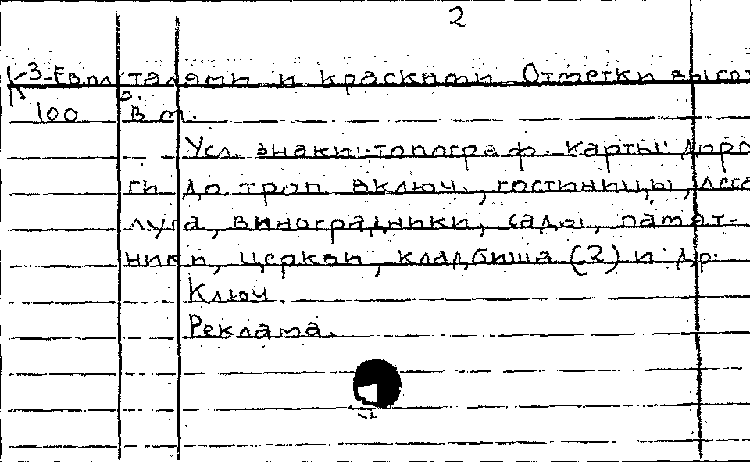 2
К3-Евпл талями и красками. Отметки высот
100 в м.
Усл. знаки: топограф. карты: доро
ги до троп включ., гостиницы, леса
луга, виноградники, сады, памят-
ники, церкви, кладбища (2) и др.
Ключ.
Реклама.